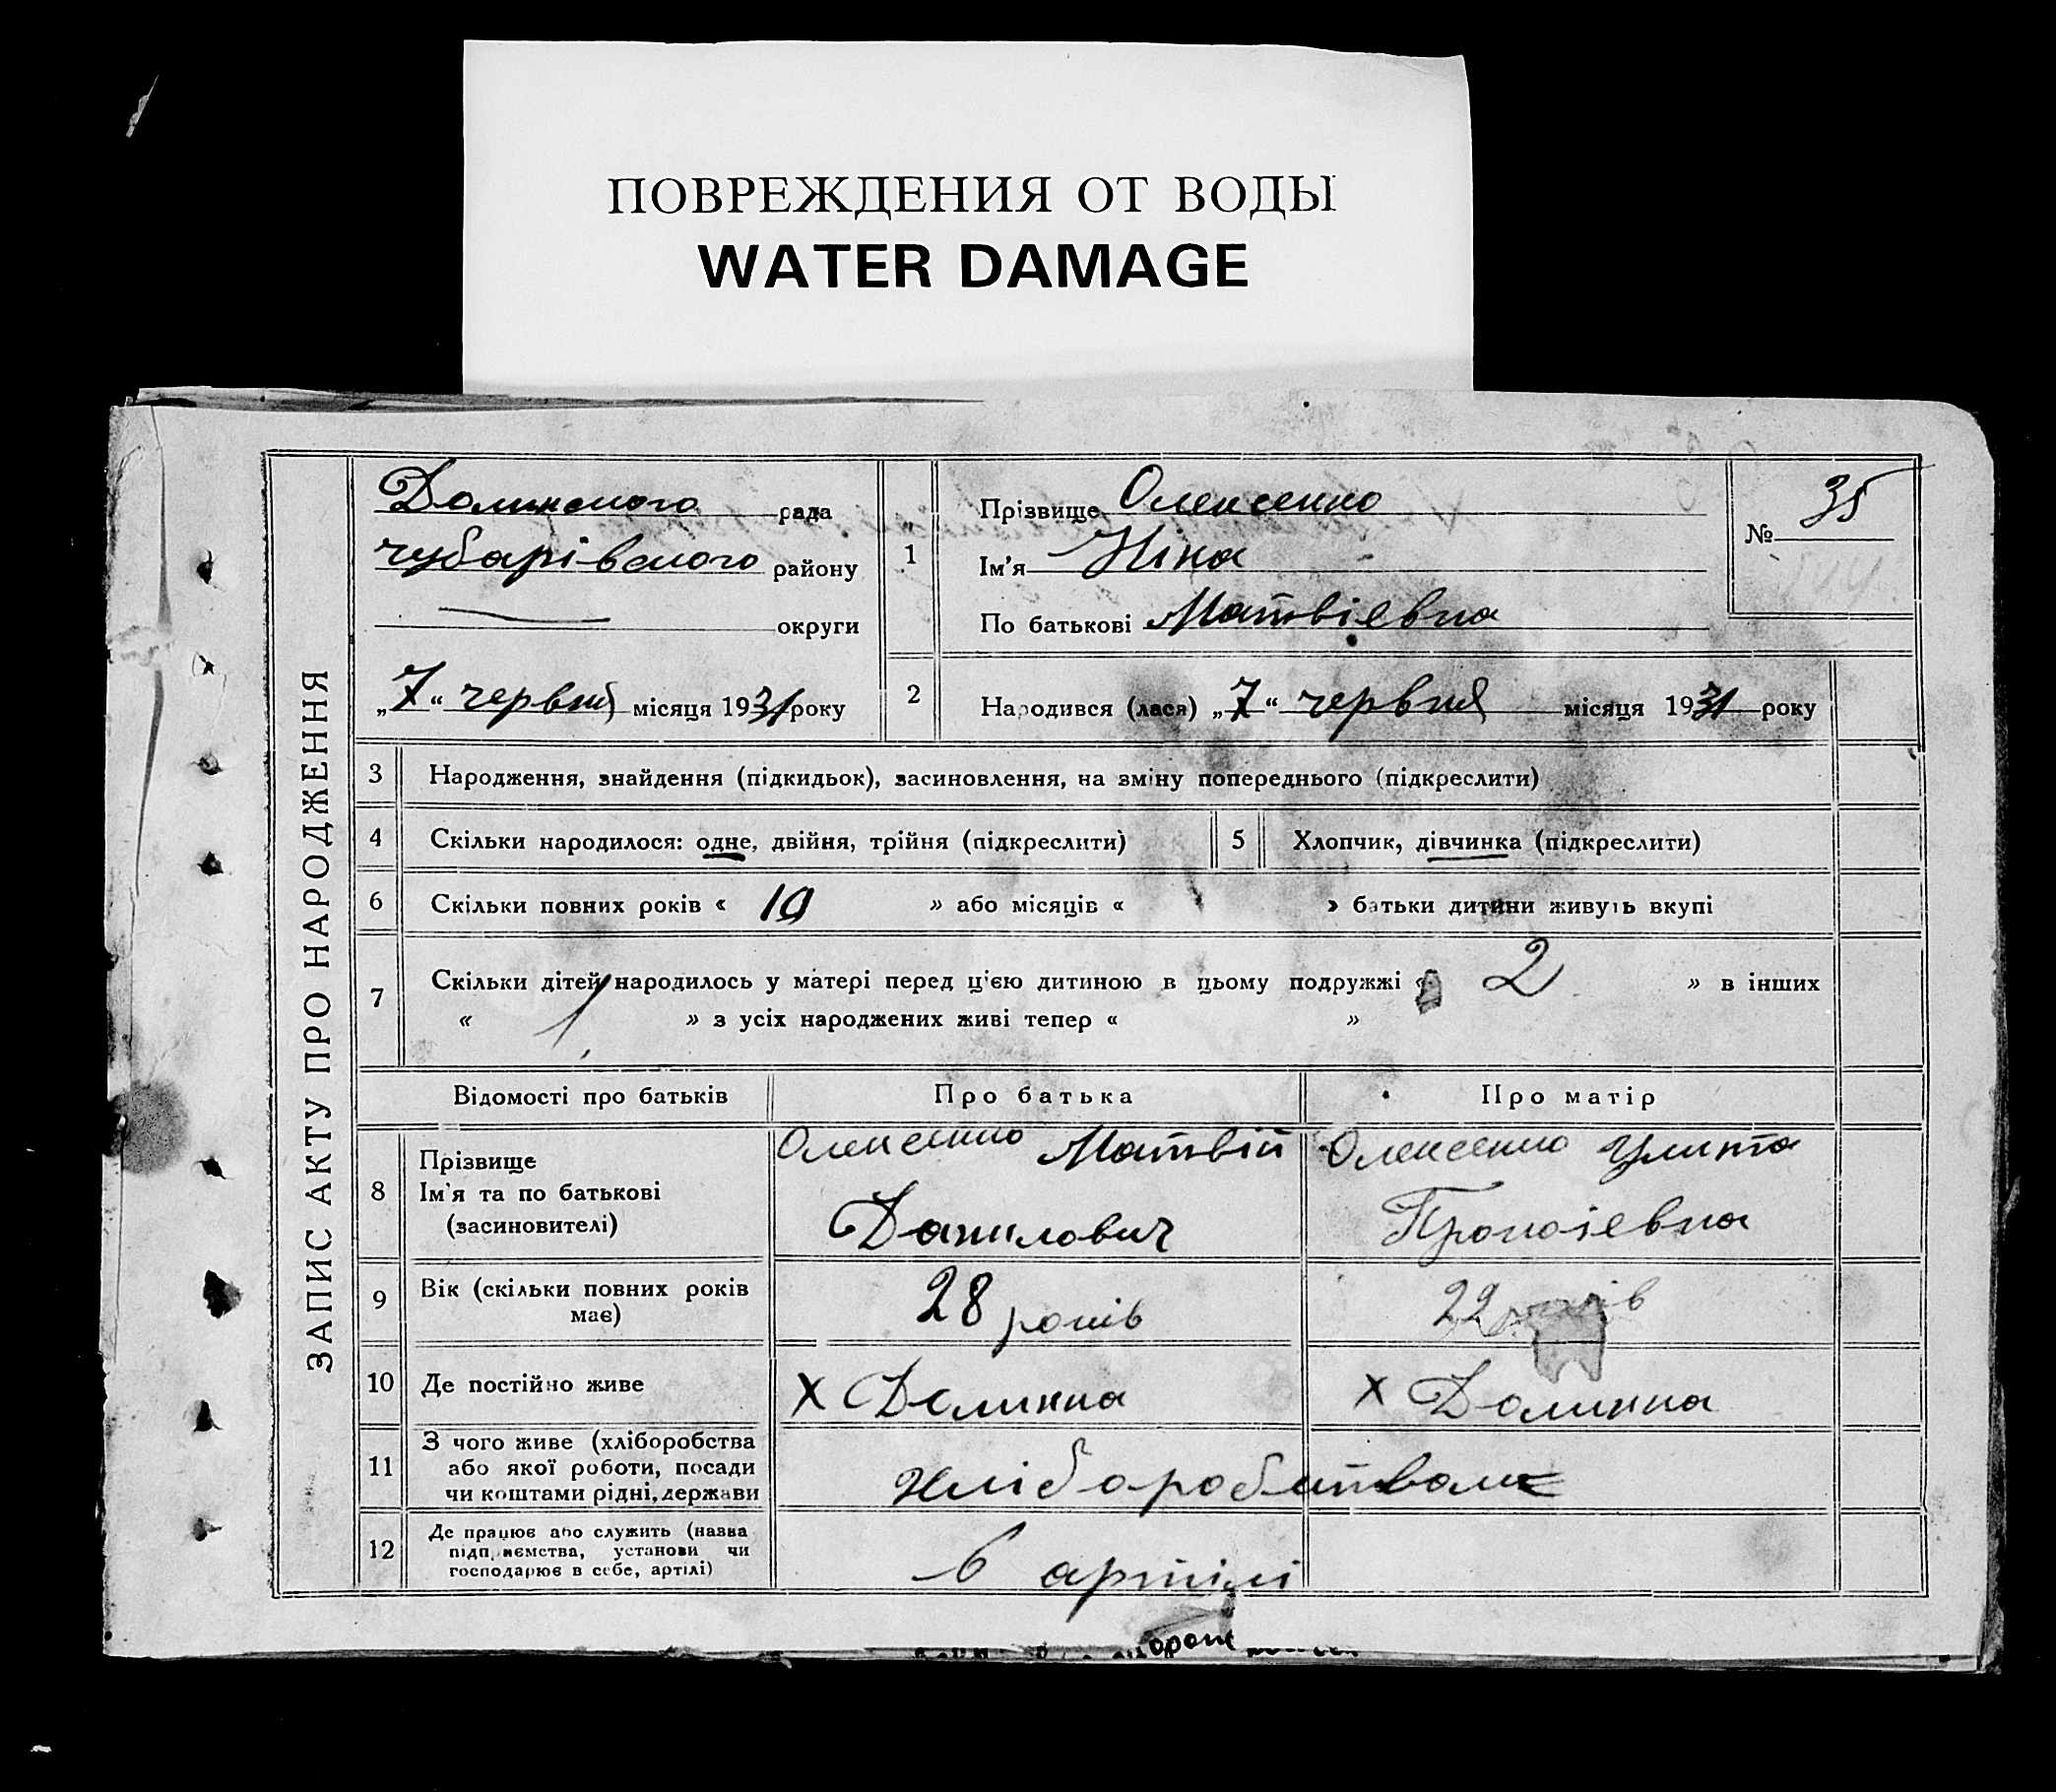 ПОВРЕЖДЕНИЯ ОТ ВОДЫ
WATER DAMAGE
ЗАПИС АКТУ ПРО НАРОДЖЕННЯ
Долинского рада
Чубарівского району
округи
„7“ червня місяця 1931 року
1
Прізвище Олексенко
Ім'я Ніна
По батькові Матвіевна
№ 35
2 Народився (лася) „7“ червня місяця 1931 року
3 Народження, знайдення (підкидьок), засиновлення, на зміну попереднього (підкреслити)
4 Скільки народилося: одне, двійня, трійня (підкреслити) 5 Хлопчик, дівчинка (підкреслити)
6 Скільки повних років « 10 » або місяців « » батьки дитини живуть вкупі
7 Скільки дітей народилось у матері перед ц'єю дитиною в цьому подружжі « 2 » в інших
« 1 » з усіх народжених живі тепер « »
Відомості про батьків Про батька Про матір
8 Прізвище
Ім'я та по батькові
(засиновителі)
Олексенко Матвій
Данилович
Олексенко Улита
9 Вік (скільки повних років
має)
28 років
22 років
10 Де постійно живе Х Долинка Х Долинка
11 З чого живе (хліборобства
або якої роботи, посади
чи коштами рідні, держави
Хліборобитвом
12 Де працює або служить (назва
підприємства, установи чи
господарює в себе, артілі)
в артілі